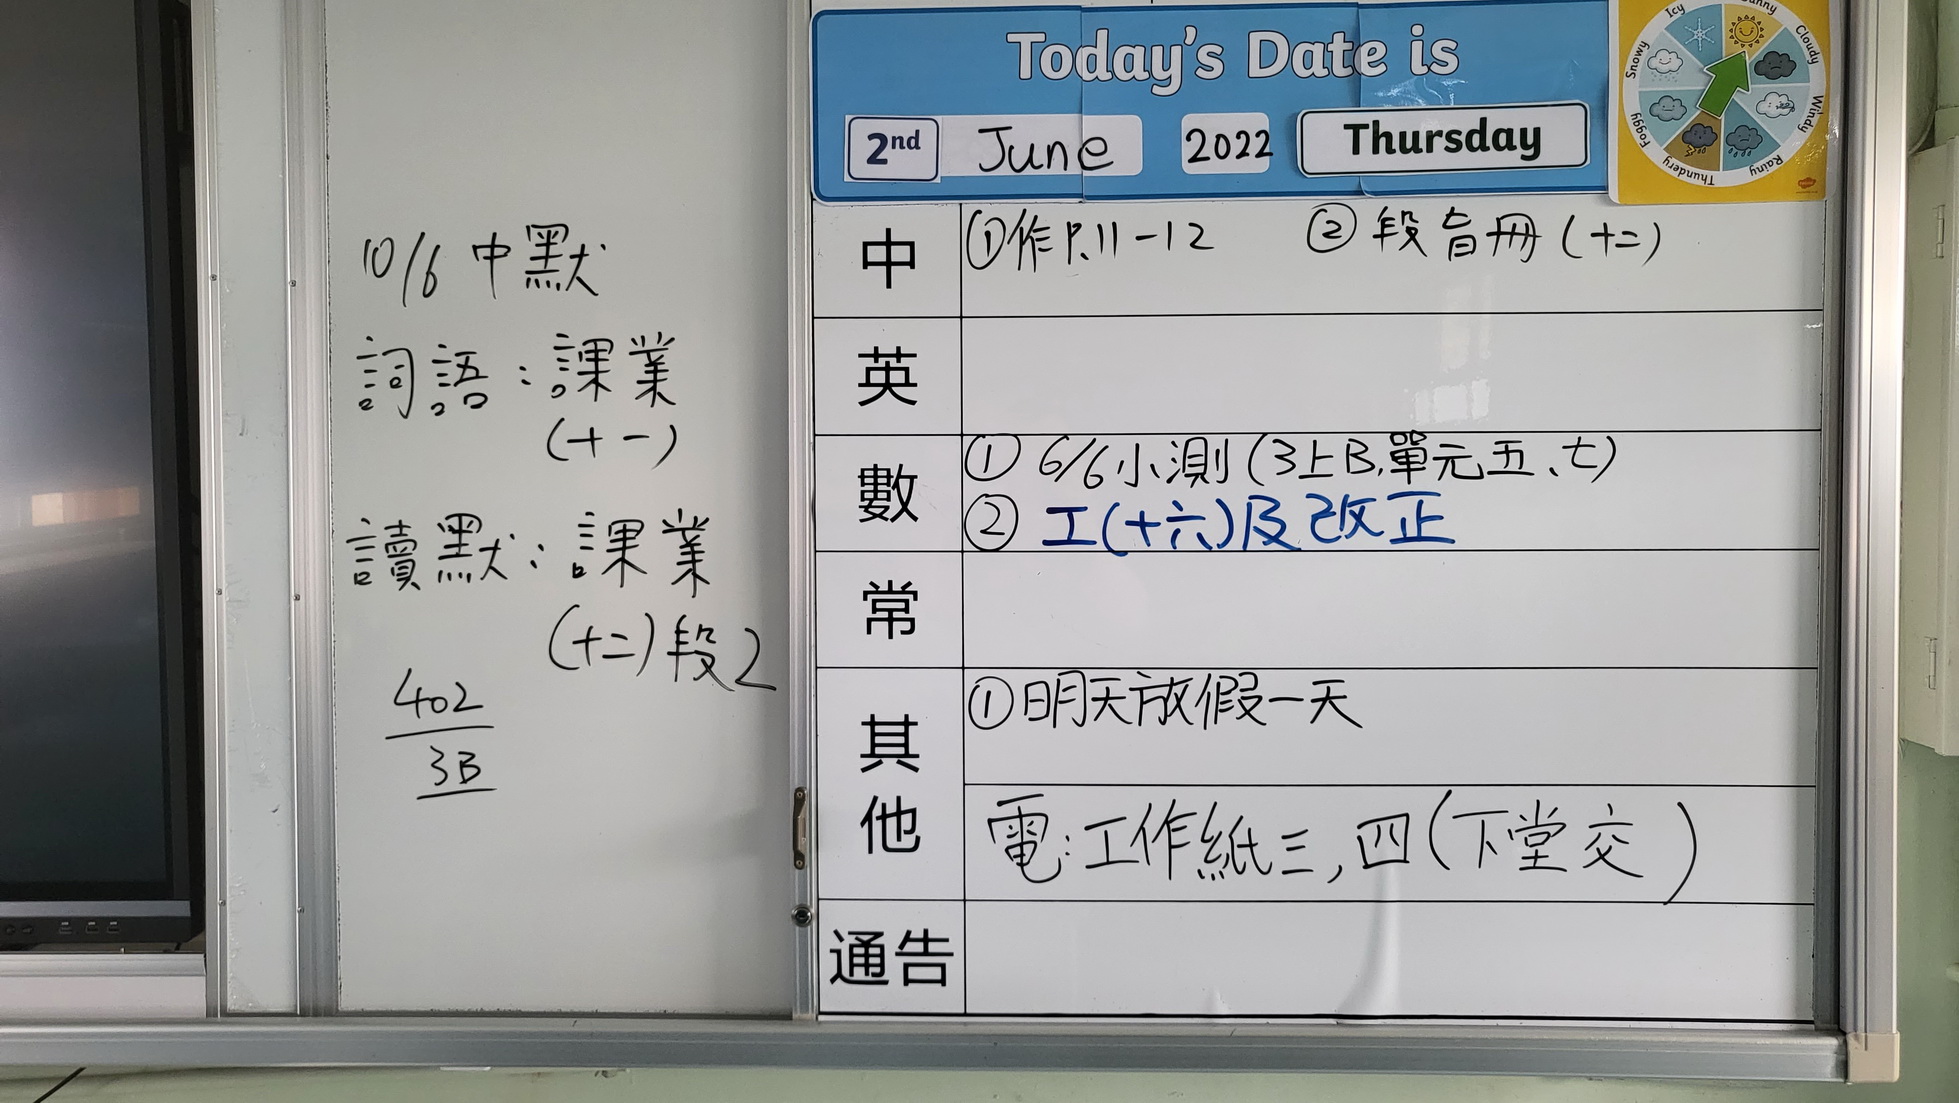 10/6 中默
詞語：課業
(十一)
讀默：課業
(十二)段2
402
3B
Today's Date is
2nd June 2022 Thursday
Icy
Sunny
Cloudy
Windy
Rainy
Thundery
Foggy
Snowy
中 ①作P.11-12 ②段旨冊(十二)
英
數 ① 6/6小測(3上B,單元五、七)
② 工(十六)及改正
常
其他 ①明天放假一天
電:工作紙三,四(下堂交)
通告